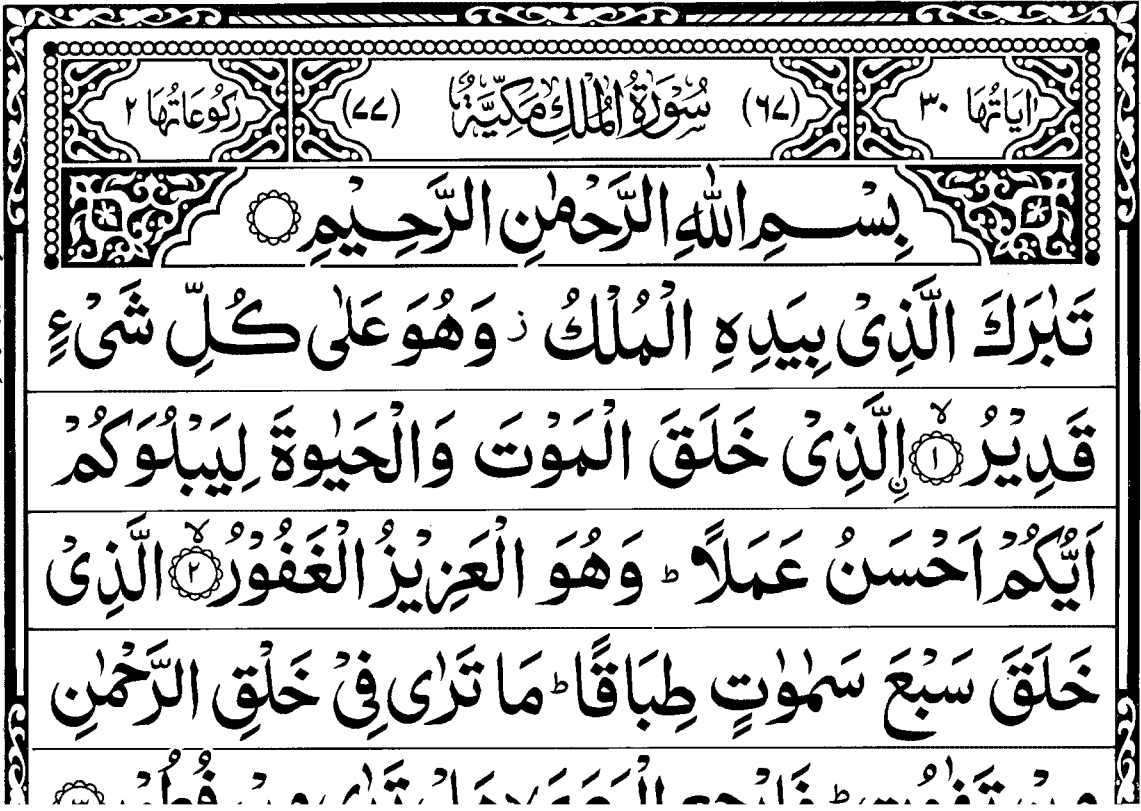 اٰيَاتُهَا ٣٠ (٦٧) سُوْرَةُ الْمُلْكِ مَكِّيَّةٌ (٧٧) رُكُوْعَاتُهَا ٢
بِسْمِ اللّٰهِ الرَّحْمٰنِ الرَّحِيْمِ
تَبٰرَكَ الَّذِىْ بِيَدِهِ الْمُلْكُ ز وَهُوَ عَلٰى كُلِّ شَىْءٍ
قَدِيْرُ ۙ ١ اۨلَّذِىْ خَلَقَ الْمَوْتَ وَالْحَيٰوةَ لِيَبْلُوَكُمْ
اَيُّكُمْ اَحْسَنُ عَمَلًا ؕ وَهُوَ الْعَزِيْزُ الْغَفُوْرُ ۙ ٢ الَّذِىْ
خَلَقَ سَبْعَ سَمٰوٰتٍ طِبَاقًا ؕ مَا تَرٰى فِىْ خَلْقِ الرَّحْمٰنِ